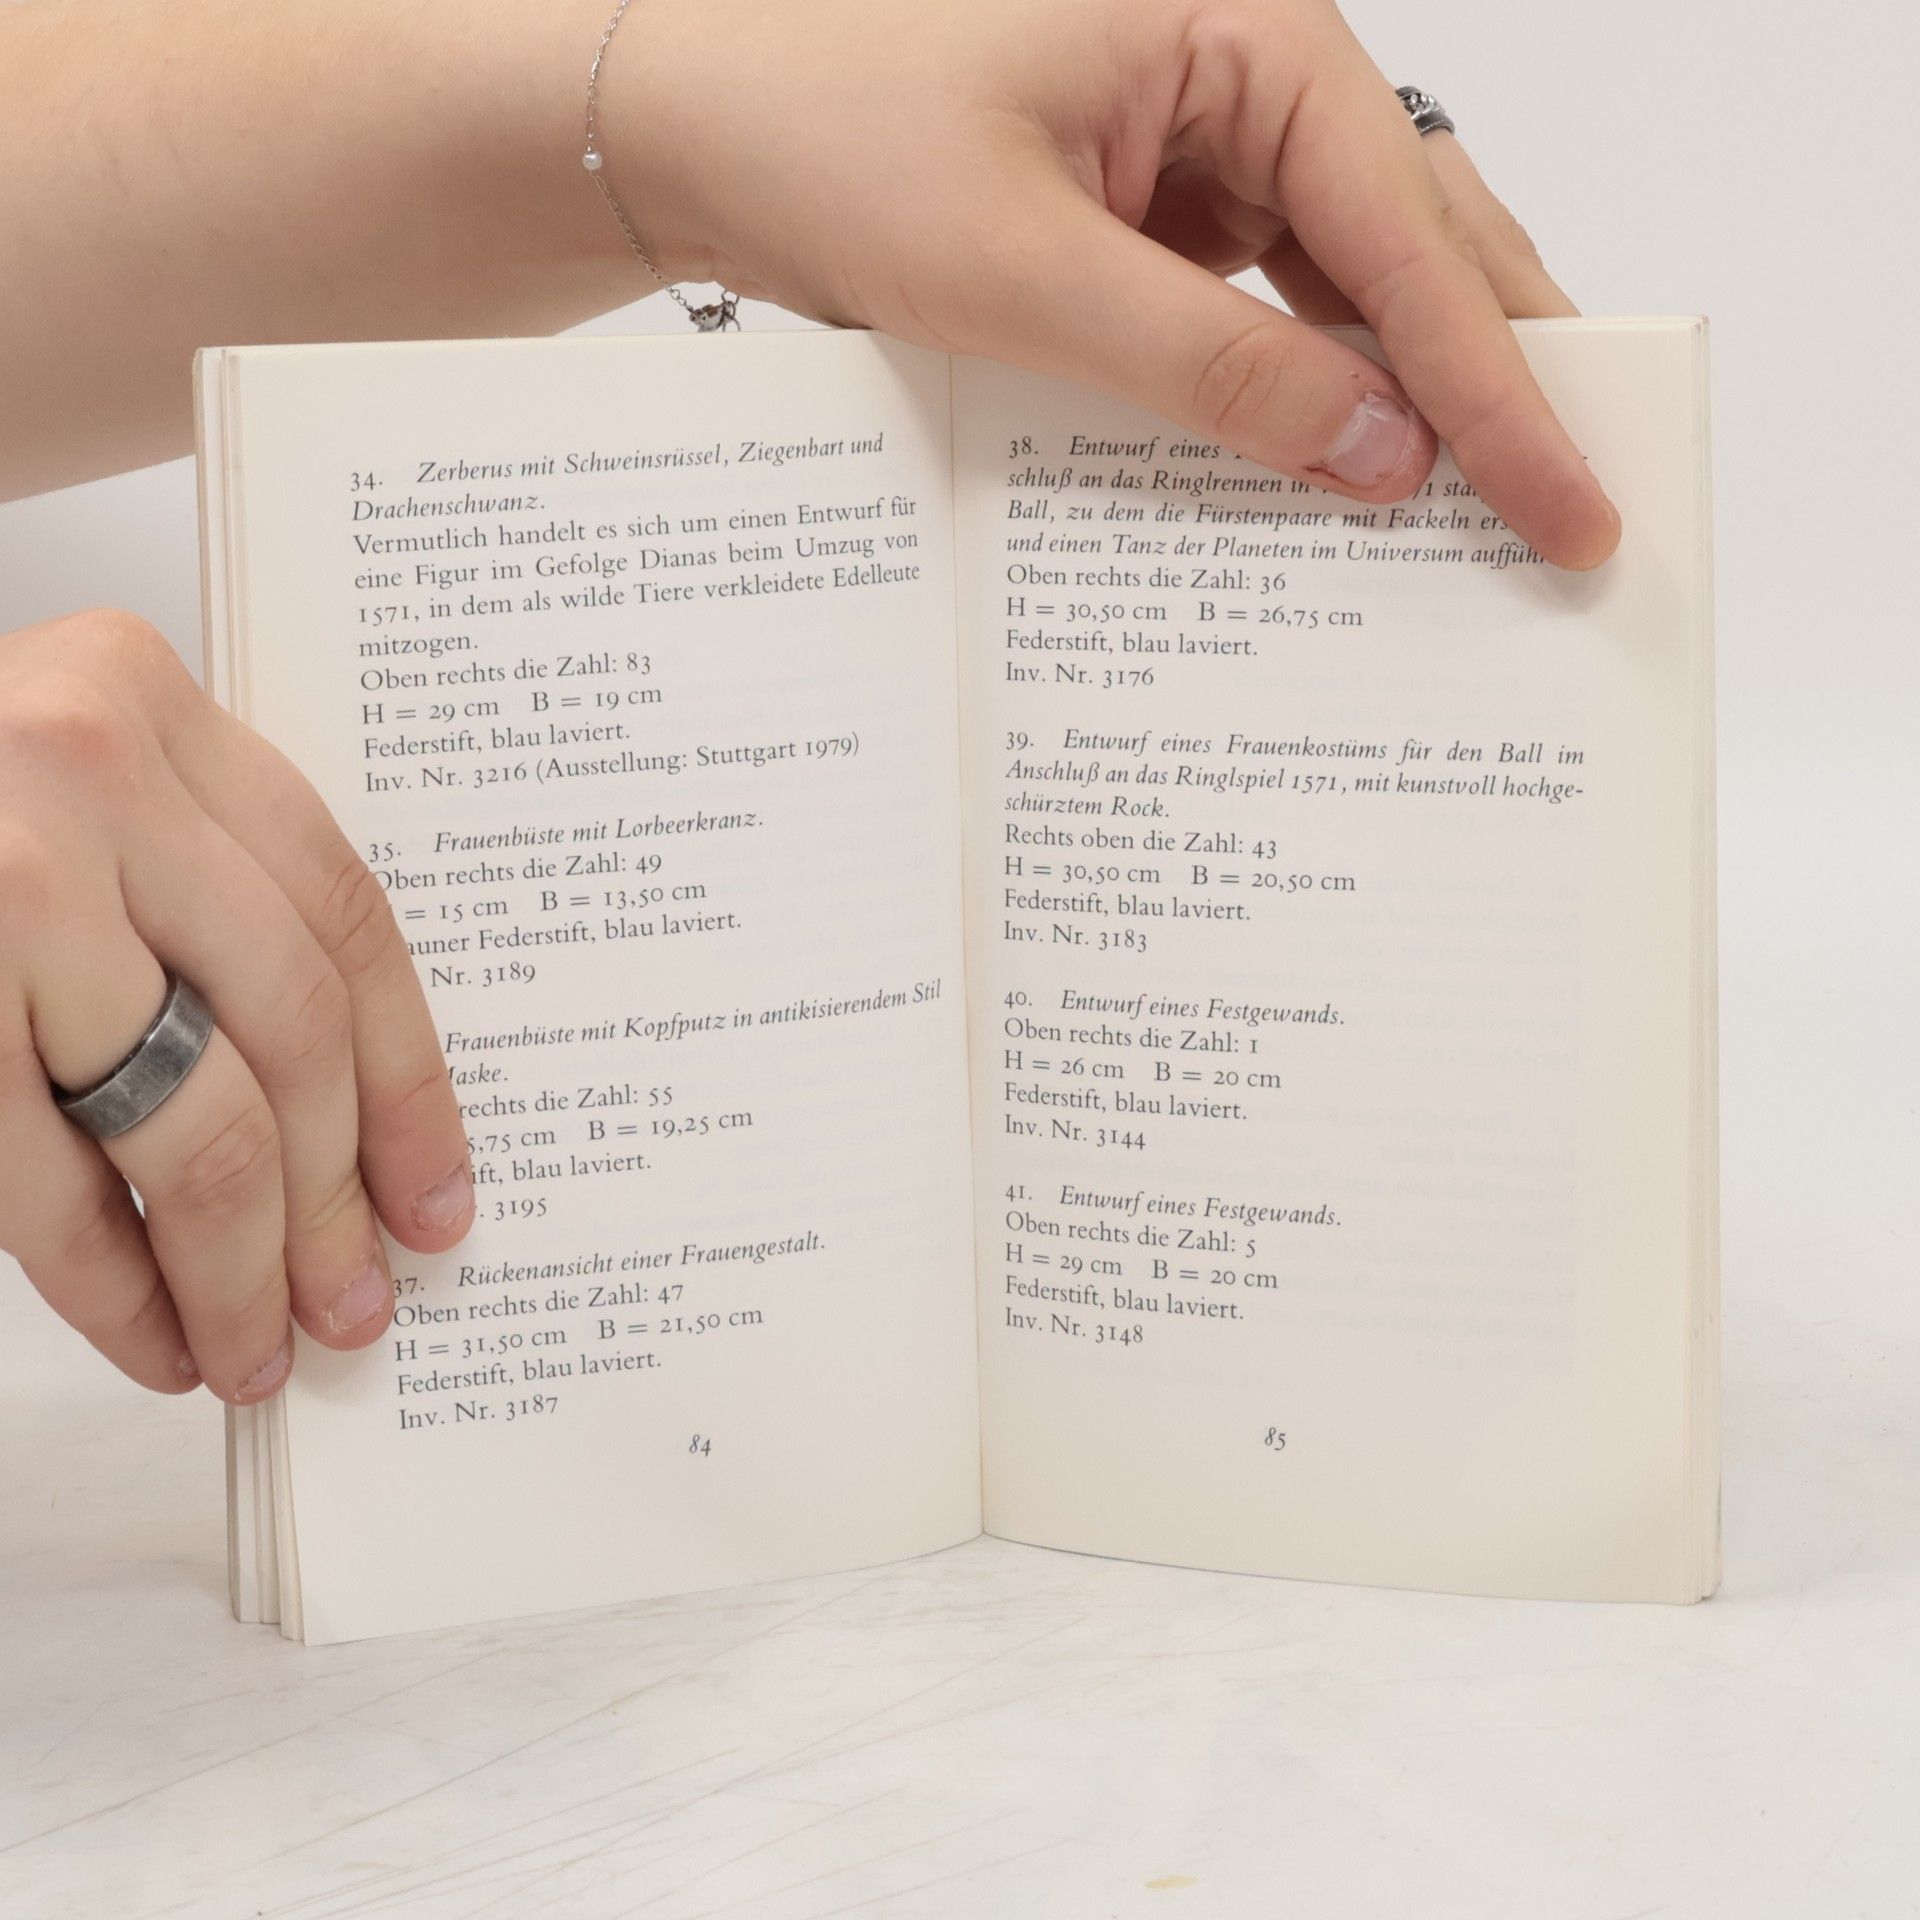 34. Zerberus mit Schweinsrüssel, Ziegenbart und
Drachenschwanz.
Vermutlich handelt es sich um einen Entwurf für
eine Figur im Gefolge Dianas beim Umzug von
1571, in dem als wilde Tiere verkleidete Edelleute
mitzogen.
Oben rechts die Zahl: 83
H = 29 cm B = 19 cm
Federstift, blau laviert.
Inv. Nr. 3216 (Ausstellung: Stuttgart 1979)
35. Frauenbüste mit Lorbeerkranz.
Oben rechts die Zahl: 49
= 15 cm B = 13,50 cm
Federstift, blau laviert.
Nr. 3189
Frauenbüste mit Kopfputz in antikisierendem Stil
rechts die Zahl: 55
B = 19,25 cm
blau laviert.
3195
37. Rückenansicht einer Frauengestalt.
Oben rechts die Zahl: 47
H = 31,50 cm B = 21,50 cm
Federstift, blau laviert.
Inv. Nr. 3187
84
38. Entwurf eines
schluß an das Ringlrennen in
Ball, zu dem die Fürstenpaare mit Fackeln
und einen Tanz der Planeten im Universum
Oben rechts die Zahl: 36
H = 30,50 cm B = 26,75 cm
Federstift, blau laviert.
Inv. Nr. 3176
39. Entwurf eines Frauenkostüms für den Ball im
Anschluß an das Ringlspiel 1571, mit kunstvoll hochge-
schürztem Rock.
Rechts oben die Zahl: 43
H = 30,50 cm B = 20,50 cm
Federstift, blau laviert.
Inv. Nr. 3183
40. Entwurf eines Festgewands.
Oben rechts die Zahl: 1
H = 26 cm B = 20 cm
Federstift, blau laviert.
Inv. Nr. 3144
41. Entwurf eines Festgewands.
Oben rechts die Zahl: 5
H = 29 cm B = 20 cm
Federstift, blau laviert.
Inv. Nr. 3148
85